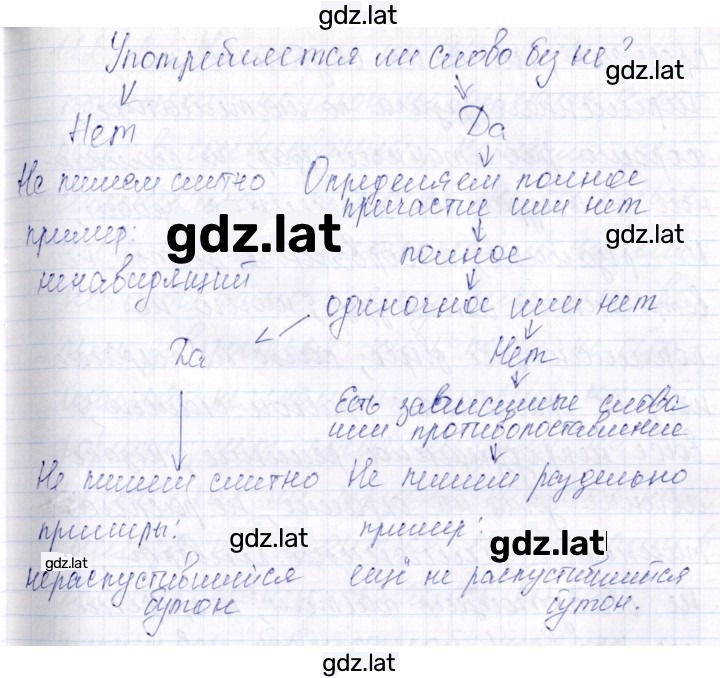 gdz.lat
Употребляется ли слово без не?
gdz.lat
Нет
Да
Не пишем слитно
Определяем полное
причастие или нет
пример:
gdz.lat
gdz.lat
ненавидящий
полное
одиночное или нет
Да
Нет
Есть зависимые слова
или противопоставление
Не пишем слитно
Не пишем раздельно
примеры:
gdz.lat
пример:
gdz.lat
gdz.lat
нераспустившийся
бутон
ещё не распустившийся
бутон.
gdz.lat